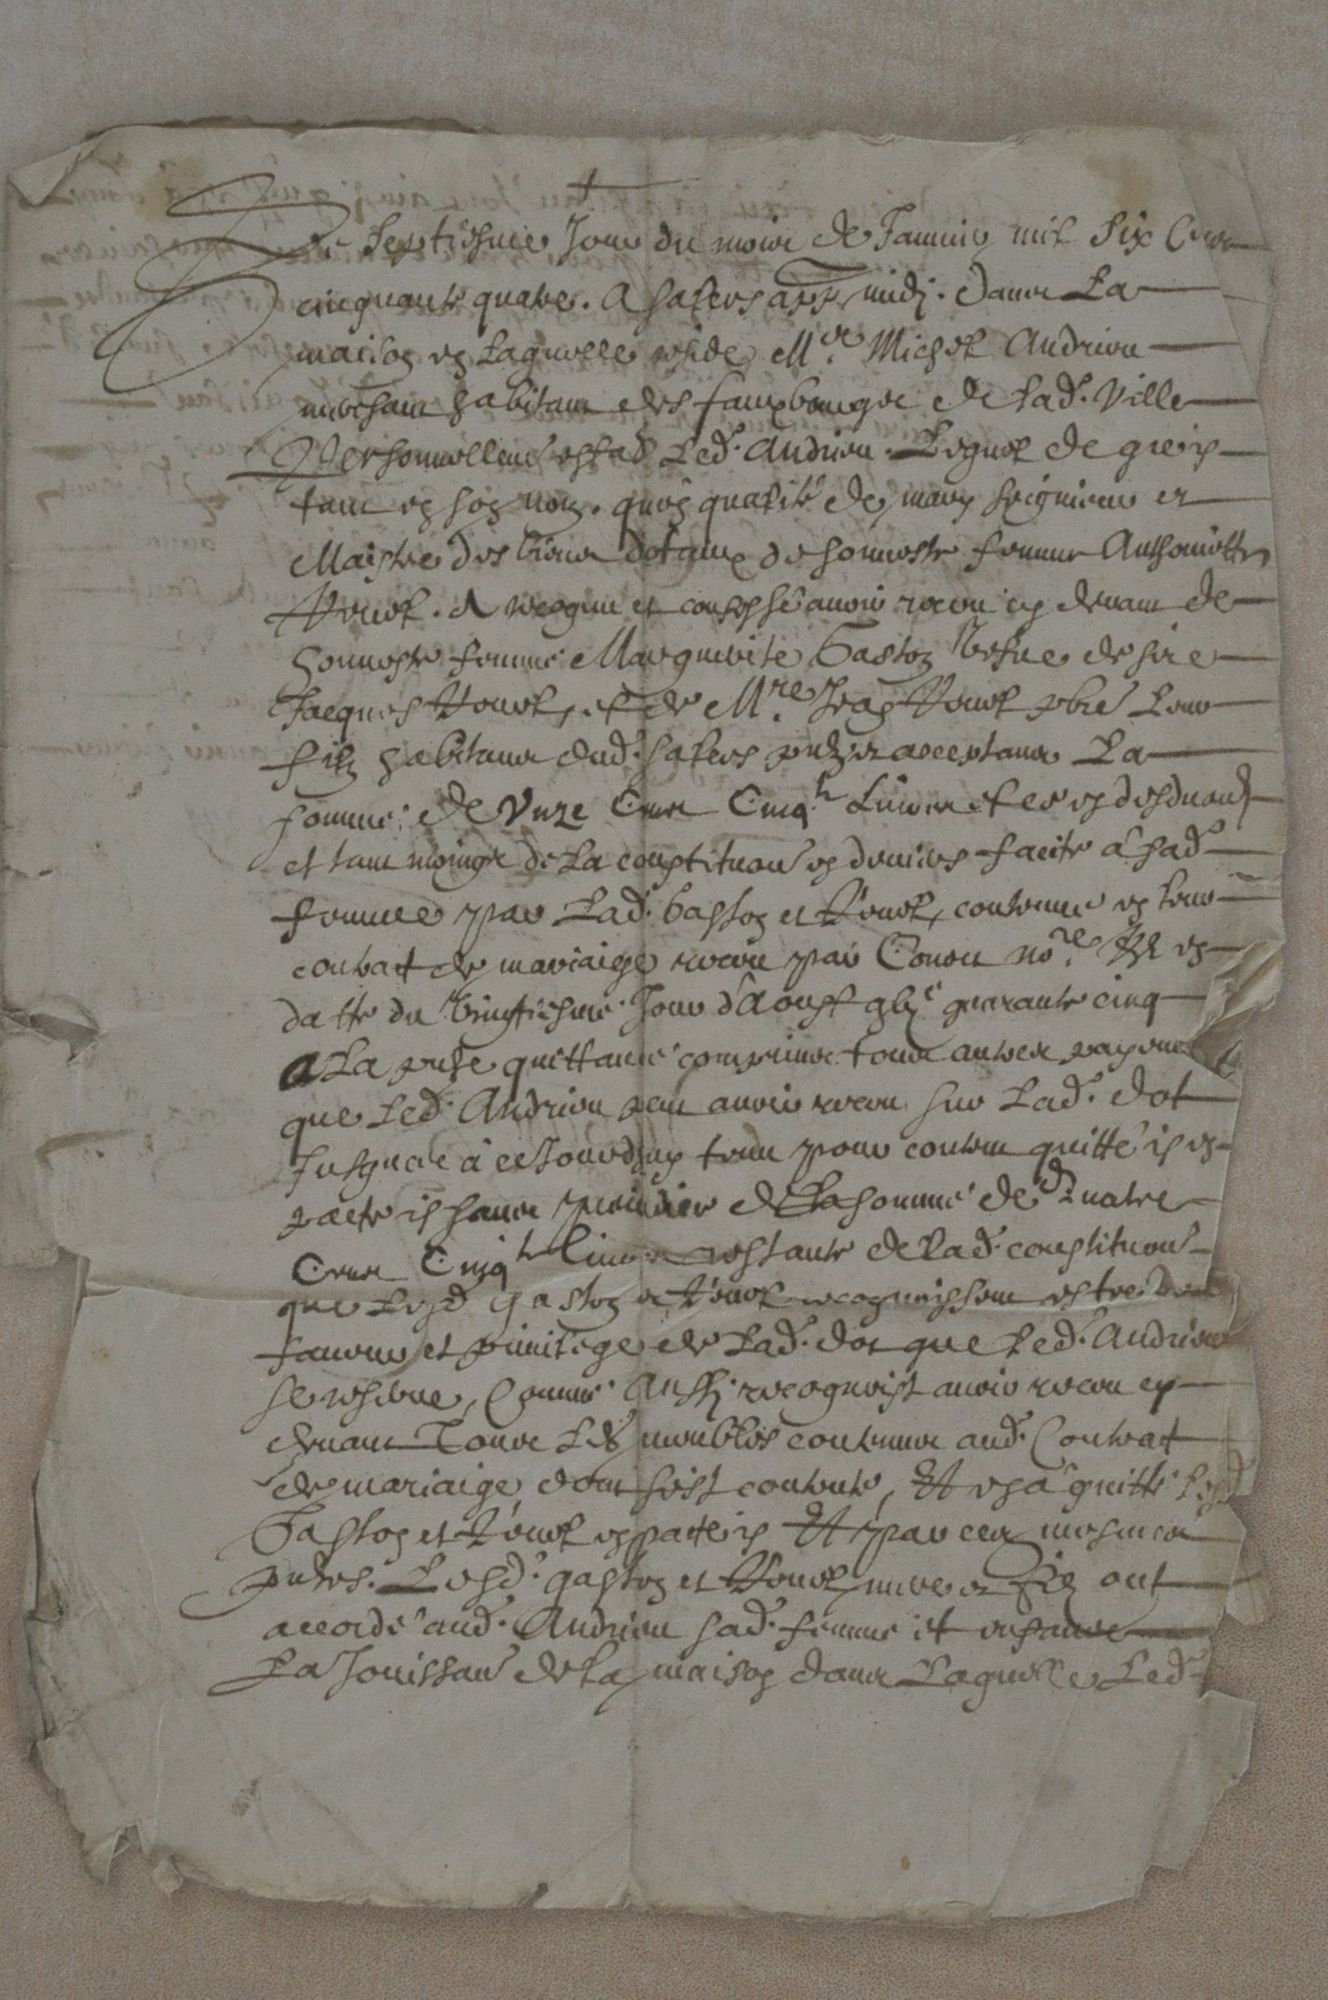 Le septiesme Jour du mois de Janvier mil six Cens
cinquante quatre. A Salers apres midi. dans La
maison en laquelle reside Mre. Michel Andrieu
merchant habitant des fauxbourgs de lad. Ville
Personnellemt estab Led. Andrieu. Lequel de gre
tant en son nom. qu'en qualité de mary seigneur et
Maistre des biens dotaux de honneste femme Anthoinette
A recogneu et confessé avoir receu cy devant de
honneste femme Marguerite Gaston vefve de sire
Jacques et de Mre. Jean pbre Leur
filz habitans dud. Salers pntz et acceptans La
somme de Unze Cens Cinqte Livres et ce en desduon
et tant moings de La constituon en deniers faicte a sad.
femme par Lad. Gaston et contenue en leur
contrat de mariaige receu par no.re en
datte du vingtiesme Jour d'Aoust quarante cinq
A La pnte quittance comprins tous autres payem
que Led. Andrieu peut avoir receu sur Lad. dot
Jusques à ce Jourdhuy tenu pour content quitté
pacte sans de La somme de Quatre
Cens Cinqte Livres restante de lad. constituon
que Lesd Gaston et recognoissent estre
faveur et privilege de Lad. dot que Led. Andrieu
se reserve, Comme Aussi recognoist avoir receu cy
devant Tous Les meubles contenus aud. Contrat
de mariaige dont s'est contenté, Et en a quitté
Gaston et Et par ces mesmes
pntes. Lesd. gaston et mere et filz ont
accordé aud. Andrieu sad. femme et enfans
La Jouissan de La maison dans Laquelle Led.